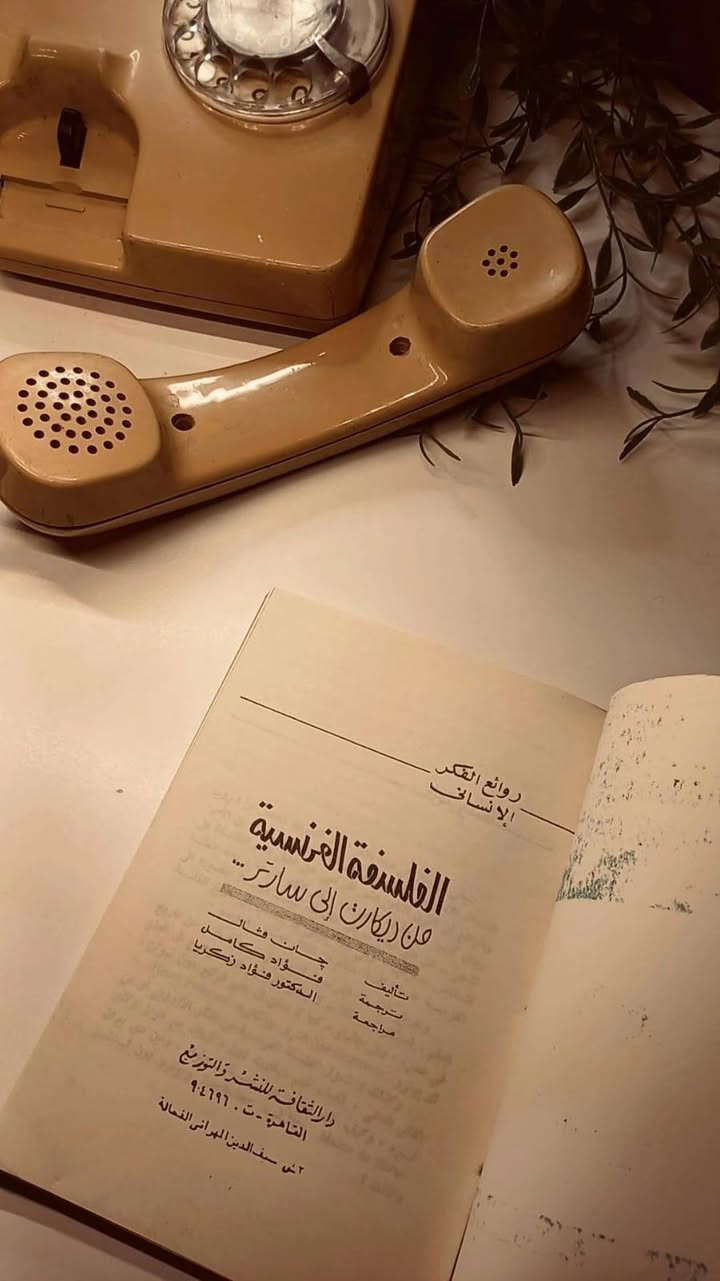 روائع الفكر
الإنسانى
الفلسفة الفرنسية
من ديكارت إلى سارتر ...
تأليف جان فال
ترجمة فؤاد كامل
مراجعة الدكتور فؤاد زكريا
دار الثقافة للنشر والتوزيع
القاهرة - ت ٩٠٤٦٩٦
٢ ش سيف الدين المهرانى الفجالة